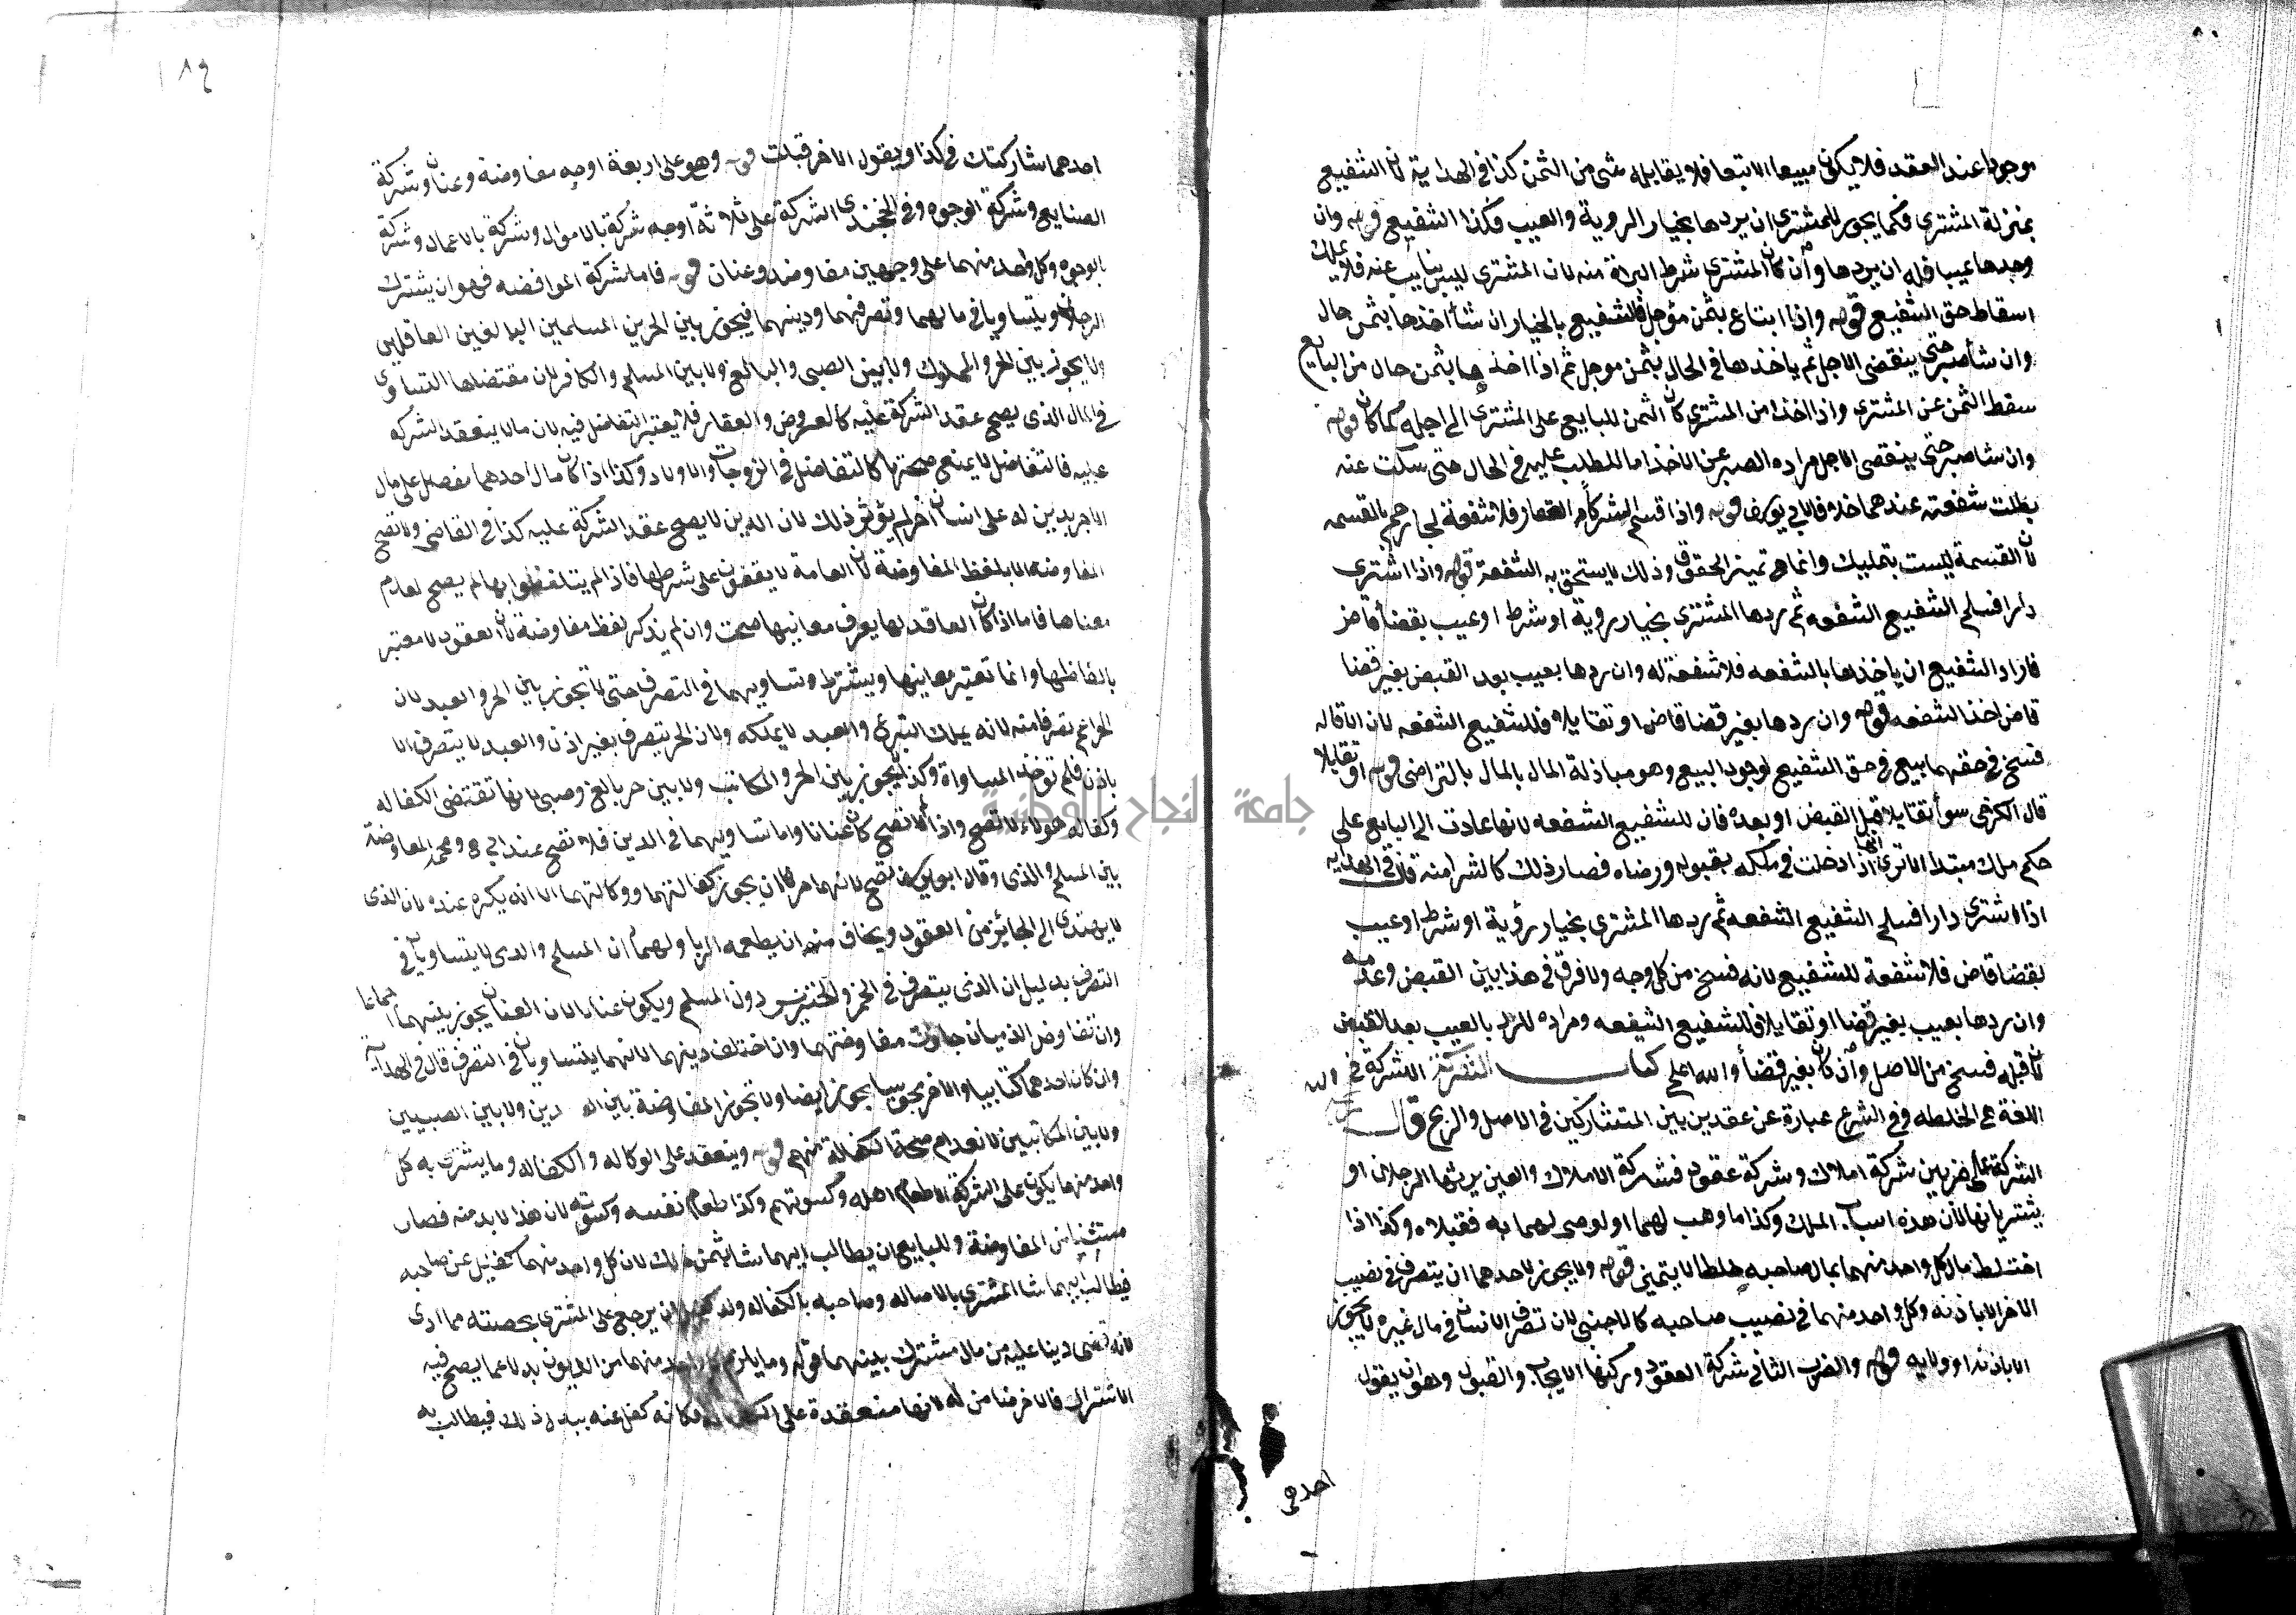 موجودا عند العقد فلا يكون مبيعا الا تبعا فلا يقابله شي من الثمن كذا في الهداية لان الشفيع
بمنزلة المشتري فكما يجوز للمشتري ان يردها بخيار الروية والعيب فكذا الشفيع قوله وان
وجدها عيبا فله ان يردها وان كان المشتري شرط البراة منه لان المشتري ليس بنايب عنه فلا يملك
اسقاط حق الشفيع قوله واذا ابتاع بثمن مؤجل فالشفيع بالخيار ان شأ اخذها بثمن حال
وان شأ صبر حتى ينقضي الاجل ثم ياخذها في الحال بثمن موجل ثم اذا اخذها بثمن حال من البايع
سقط الثمن عن المشتري واذا اخذ من المشتري كان الثمن للبايع على المشتري الى اجله كما كان قوله
وان شا صبر حتى ينقضي الاجل مراده الصبر عن الاخذ اما الطلب عليه في الحال حتى سكت عنه
بطلت شفعته عندهما خلافا لابي يوسف قوله واذا قسم الشركا العقار فلا شفعة لجارهم بالقسمه
لان القسمة ليست بتمليك وانما هي تميز الحقوق وذلك لا يستحق به الشفعة قوله واذا اشترى
دارا فسلم الشفيع الشفعه ثم ردها المشتري بخيار روية او شرط او عيب بقضأ قاض
فاراد الشفيع ان ياخذها بالشفعه فلا شفعة له وان ردها بعيب بعد القبض بغير قضا
قاض اخذ الشفعه قوله وان ردها بغير قضا قاض او تقايلا فللشفيع الشفعه لان الاقاله
فسخ في حقهما بيع في حق الشفيع لوجود البيع وهو مبادلة المال بالمال بالتراضي قوله او تقايلا
قال الكرخي سوأ تقايلا قبل القبض او بعده فان للشفيع الشفعه لانها عادت الى البايع على
حكم ملك مبتدا الا ترى انها اذا دخلت في ملكه بقبوله ورضاه فصار ذلك كالشرا منه قال في الهدايه
اذا اشترى دارا فسلم الشفيع الشفعه ثم ردها المشتري بخيار رؤية او شرط او عيب
بقضا قاض فلا شفعة للشفيع لانه فسخ من كل وجه ولا فرق في هذا بين القبض وعدمه
وان ردها بعيب بغير قضا او تقايلا فللشفيع الشفعه ومراده للرد بالعيب بعد القبض
لان قبله فسخ من الاصل وان كان بغير قضأ والله اعلم كتاب الشركة الشركة في
اللغة هي الخلطه وفي الشرع عبارة عن عقد بين المتشاركين في الاصل والربح قال
الشركة على ضربين شركة املاك وشركة عقود فشركة الاملاك والعين يرثها الرجلان او
يشتريانها لان هذه اسباب الملك وكذا ما وهب لهما او اوصي لهما به فقبلاه وكذا اذا
اختلط مال كل واحد منهما بمال صاحبه خلطا لا يتميز قوله ولا يجوز لاحدهما ان يتصرف في نصيب
الاخر الا باذنه وكل واحد منهما في نصيب صاحبه كالاجنبي لان تصرف الانسان في مال غيره لا يجوز
الا باذنه او ولايه قوله والضرب الثاني شركة العقود وركنها الايجاب والقبول وهو ان يقول
احدهما
احدهما شاركتك في كذا ويقول الاخر قبلت قوله وهو على اربعة اوجه مفاوضة وعنان وشركة
الصنايع وشركة الوجوه وفي الخجندي الشركة على ثلاثة اوجه شركة بالاموال وشركة بالاعمال وشركة
بالوجوه وكل واحد منهما على وجهين مفاوضه وعنان قوله فاما شركة المفاوضه فهو ان يشترك
الرجلان ويتساويا في مالهما وتصرفهما ودينهما فيجوز بين الحرين المسلمين البالغين العاقلين
ولا يجوز بين الحر والمملوك ولا بين الصبي والبالغ ولا بين المسلم والكافر لان مقتضاها التساوي
في المال الذي يصح عقد الشركة عليه كالعروض والعقار فلا يعتبر التفاضل فيه لان ما لا ينعقد الشركه
عليه فالتفاضل لا يمنع صحتها كالتفاضل في الزوجات والاولاد وكذا اذا كان مال احدهما يفضل على مال
الاخر بدين له على انسان اخر لم يؤثر ذلك لان الدين لا يصح عقد الشركة عليه كذا في القاضي ولا تصح
المفاوضه الا بلفظ المفاوضة لان العامة لا يقفون على شرطها فاذا لم يتلفظوا بها لم يصح لعدم
معناها فاما اذا كان العاقد لها يعرف معانيها صحت وان لم يذكر لفظ مفاوضة لان العقود لا معتبر
بالفاظها وانما تعتبر معانيها ويشترط تساويهما في التصرف حتى لا تجوز بين الحر والعبد لان
الحر اعم تصرفا منه لانه يملك التبرع والعبد لا يملكه ولان الحر يتصرف بغير اذن والعبد لا يتصرف الا
باذن فلم توجد المساواة وكذا لا يجوز بين الحر والمكاتب ولا بين حر بالغ وصبي لانها تقتضي الكفاله
وكفاله هولاء لا تصح واذا لم تصح كان عنانا واما تساويهما في الدين فلا تصح عند ابي ح ومحمد المفاوضة
بين المسلم والذمي وقال ابو يوسف تصح لانهما حران يجوز كفالتهما ووكالتهما الا انه يكره عنده لان الذمي
لا يهتدي الى الجائز من العقود ويخاف منه ان يطعمه الربا ولهما ان المسلم والذمي لا يتساويان في
التصرف بدليل ان الذمي يتصرف في الخمر والخنزير دون المسلم ويكون عنانا لان العنان يجوز بينهما اجماعا
وان تفاوض الذميان جازت مفاوضتهما وان اختلف دينهما لانهما يتساويان في التصرف قال في الهداية
وان كان احدهما كتابيا والاخر مجوسيا يجوز ايضا ولا تجوز المفاوضة بين العبدين ولا بين الصبيين
ولا بين المكاتبين لانعدام صحة الكفالة منهم قوله وينعقد على الوكاله والكفاله وما يشتري به كل
واحد منهما يكون على الشركة الا طعام اهله وكسوتهم وكذا طعام نفسه وكسوته لان هذا لا بد منه فصار
مستثنا من المفاوضة وللبايع ان يطالب ايهما شا بثمن ذلك لان كل واحد منهما كفيل عن صاحبه
فيطالب ايهما شا المشتري بالاصاله وصاحبه بالكفاله ان يرجع على المشتري بحصته مما ادى
لانه قضى دينا عليه من مال مشترك بينهما قوله وما يلزم كل واحد منهما من الديون بدلا عما يصح فيه
الاشتراك فالاخر ضامن له لانها منعقدة على فكانه كفل عنه ببدل ذلك فيطالب به
جامعة النجاح الوطنية